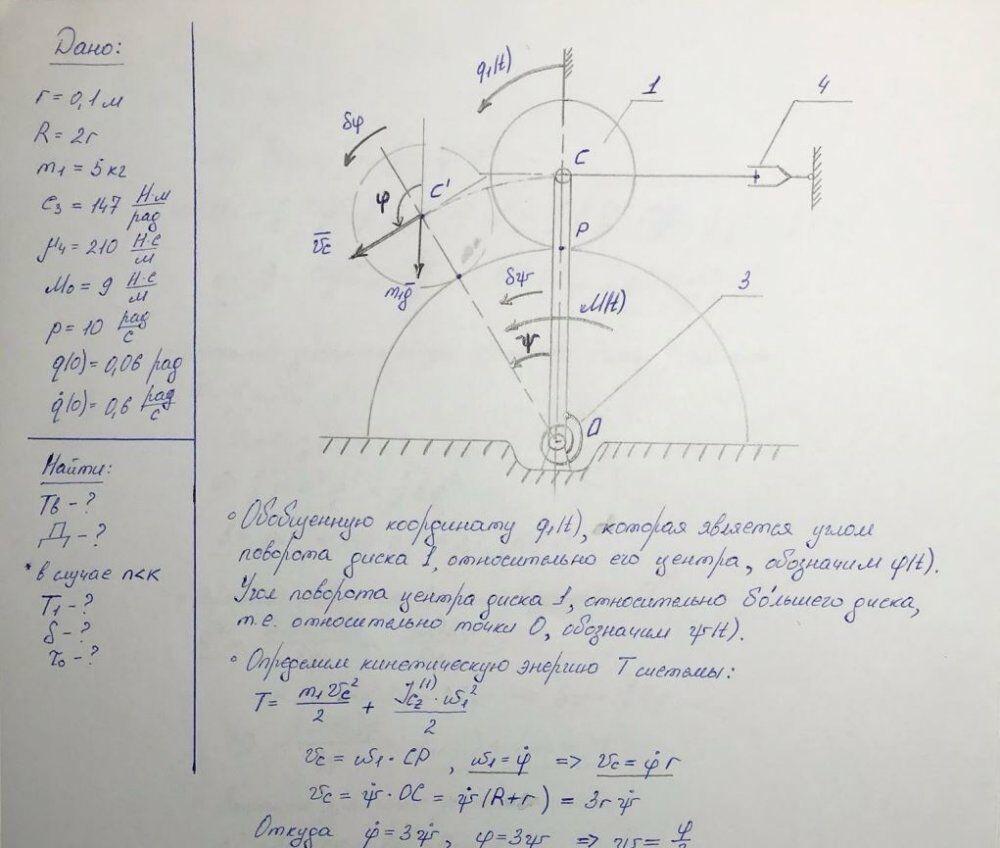 Дано:
r = 0,1 м
R = 2r
m₁ = 5 кг
c₃ = 147 Н·м/рад
μ₄ = 210 Н·с/м
M₀ = 9 Н·с/м
p = 10 рад/с
q(0) = 0,06 рад
q̇(0) = 0,6 рад/с
Найти:
Tв - ?
Д - ?
* в случае n<k
T₁ - ?
δ - ?
τ₀ - ?
q₁(t)
1
4
δφ
C
C'
φ
v̄c
P
m₁ḡ
δψ
M(t)
3
ψ
O
° Обобщенную координату q₁(t), которая является углом
поворота диска 1, относительно его центра, обозначим φ(t).
Угол поворота центра диска 1, относительно бо́льшего диска,
т.е. относительно точки O, обозначим ψ(t).
° Определим кинетическую энергию T системы:
T = m₁vc²/2 + Jcz⁽¹⁾·ω₁²/2
vc = ω₁·CP , ω₁ = φ̇ => vc = φ̇ r
vc = ψ̇·OC = ψ̇(R+r) = 3rψ̇
Откуда φ̇ = 3ψ̇, φ = 3ψ => ψ = φ/3